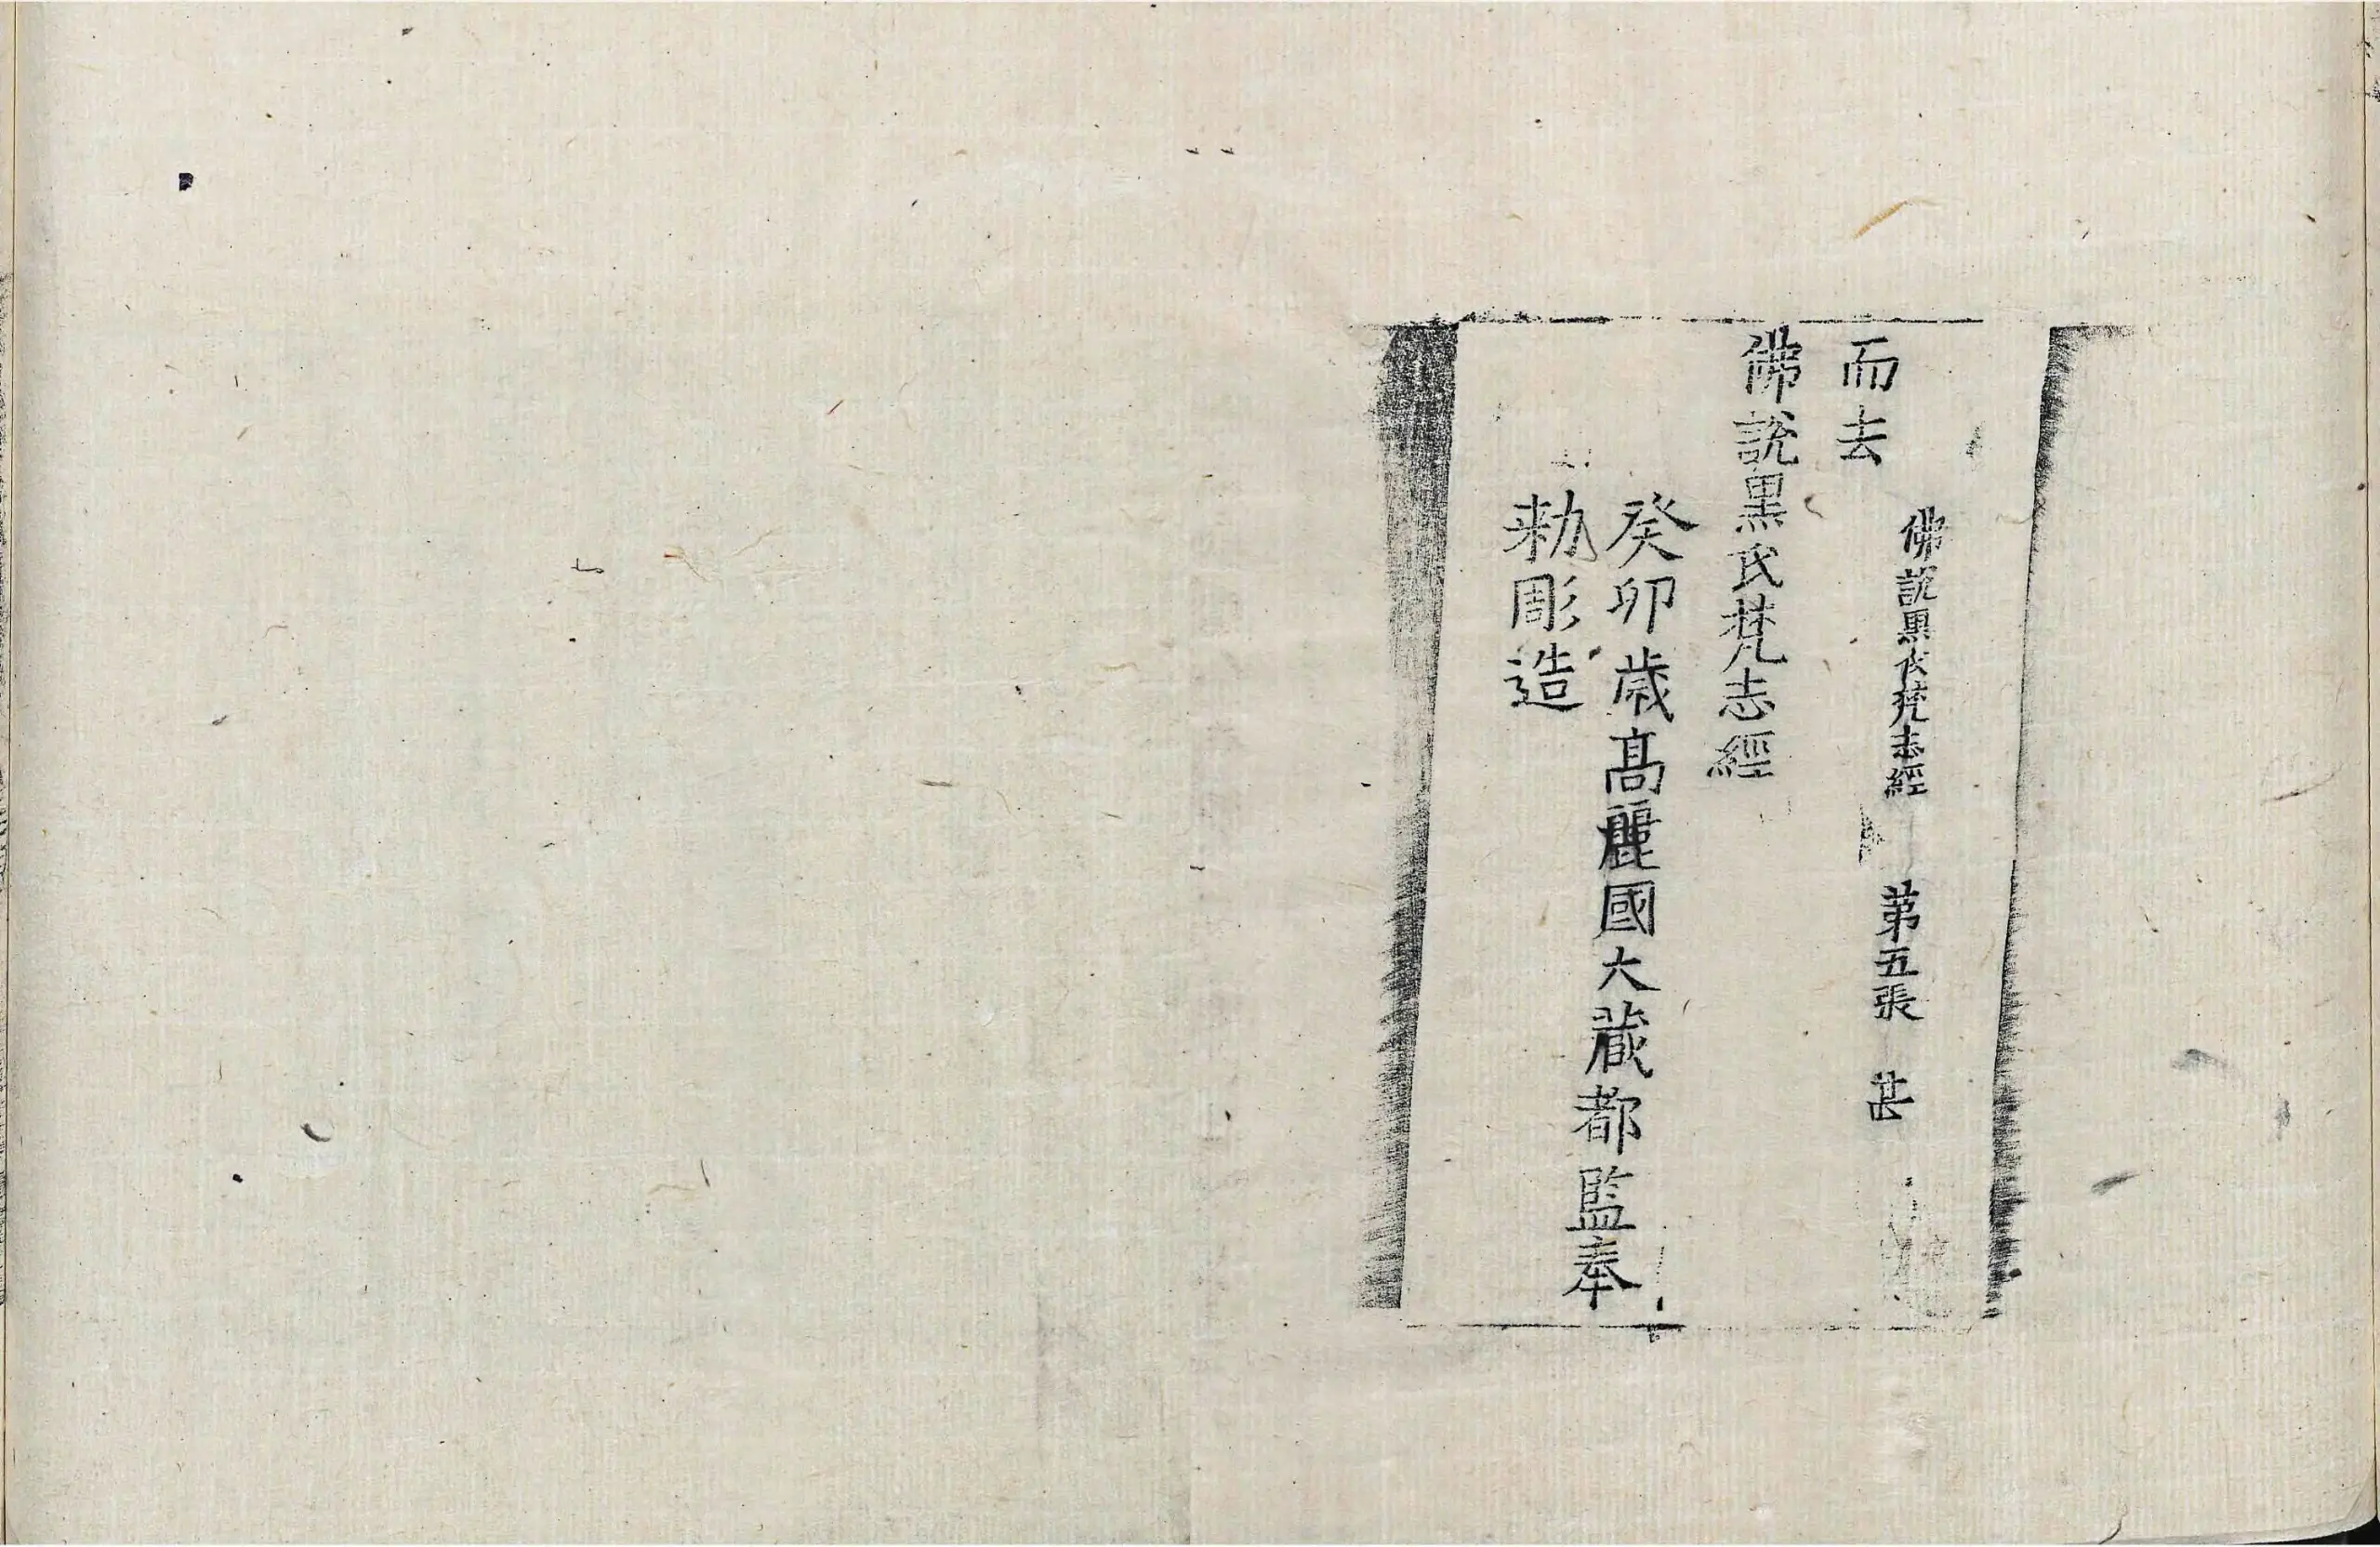 佛說黑氏梵志經　第五張　甚
而去
佛說黑氏梵志經
癸卯歲高麗國大藏都監奉
勑彫造